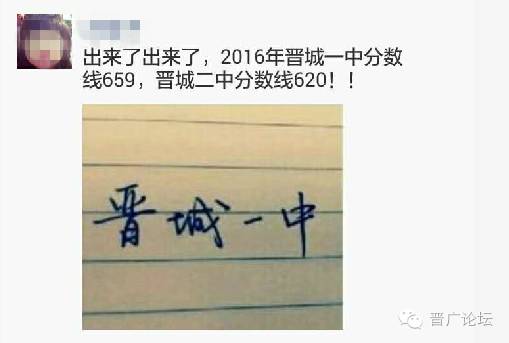 出来了出来了，2016年晋城一中分数
线659，晋城二中分数线620！！
晋城一中
晋广论坛